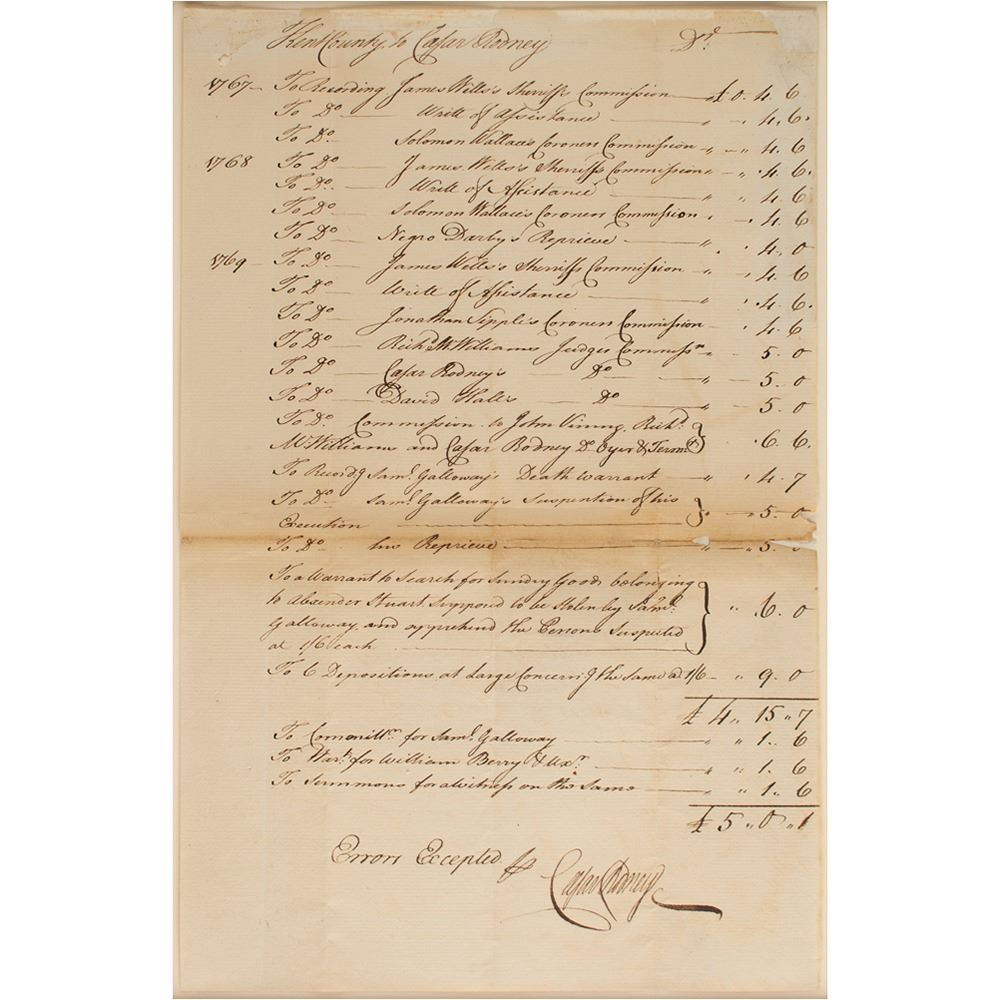 Kent County to Cæsar Rodney Dr
1767 To Recording James Wells's Sherriffs Commission £ 0. 4. 6
To Do Writt of Assistance " . 4. 6.
To Do Solomon Wallace's Coroners Commission " " 4. 6
1768 To Do James Wells's Sherriffs Commission " " 4. 6.
To Do Writt of Assistance " 4. 6
To Do Solomon Wallace's Coroners Commission . 4. 6
To Do Negro Darby's Reprieve " . 4. 0
1769 To Do James Wells's Sherriffs Commission " . 4. 6
To Do Writt of Assistance " . 4. 6.
To Do Jonathan Sipple's Coroners Commission . 4. 6
To Do Richd McWilliams Judges Commissn " 5. 0
To Do Cæsar Rodney's Do " 5. 0
To Do David Hall's Do " 5. 0
To Do Commission to John Vining, Richd
McWilliams and Cæsar Rodney Do Oyer & Termr } . 6. 6.
To Recordg Saml. Galloway's Death Warrant " . 4. 7
To Do Saml. Galloway's Suspention of his
Execution } " 5. 0
To Do his Reprieve " " 5.
To a Warrant to Search for Sundry Goods belonging
to Alexander Stuart Supposed to be Stolen by Saml.
Galloway and apprehend the Persons Suspected
at 1/6 each } " .6. 0
To 6 Depositions at Large Concerng the Same @ 1/6 " 9. 0
£ 4 " 15 " 7
To for Saml. Galloway " " 1. 6
To Wart. for William Berry & Uxr. " " 1. 6
To Summons for a Witness on the Same " " 1. 6
£ 5 " 0 " 1
Errors Excepted
Cæsar Rodney